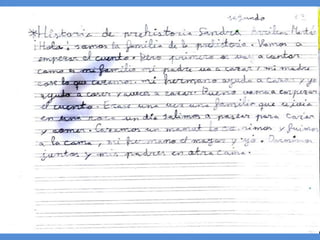 segundo
*Historia de prehistoria Sandra
¡Hola! somos la familia de la prehistoria. Vamos a
empezar el cuento. Pero primero os voy a contar
como a mi familia mi padre va a cazar y mi madre
cose lo que caremos. mi hermano ayuda a cazar y yo
ayudo a coser y a veces a cazar. Bueno vamos a empezar
el cuento. Erase una vez una familia que vivia
en una un dia salimos a pasear para cazar
y comer. Cazamos un mamut lo comimos y fuimos
a la cama, mi hermano el mayor y yo. Dormimos
juntos y mis padres en otra cama.